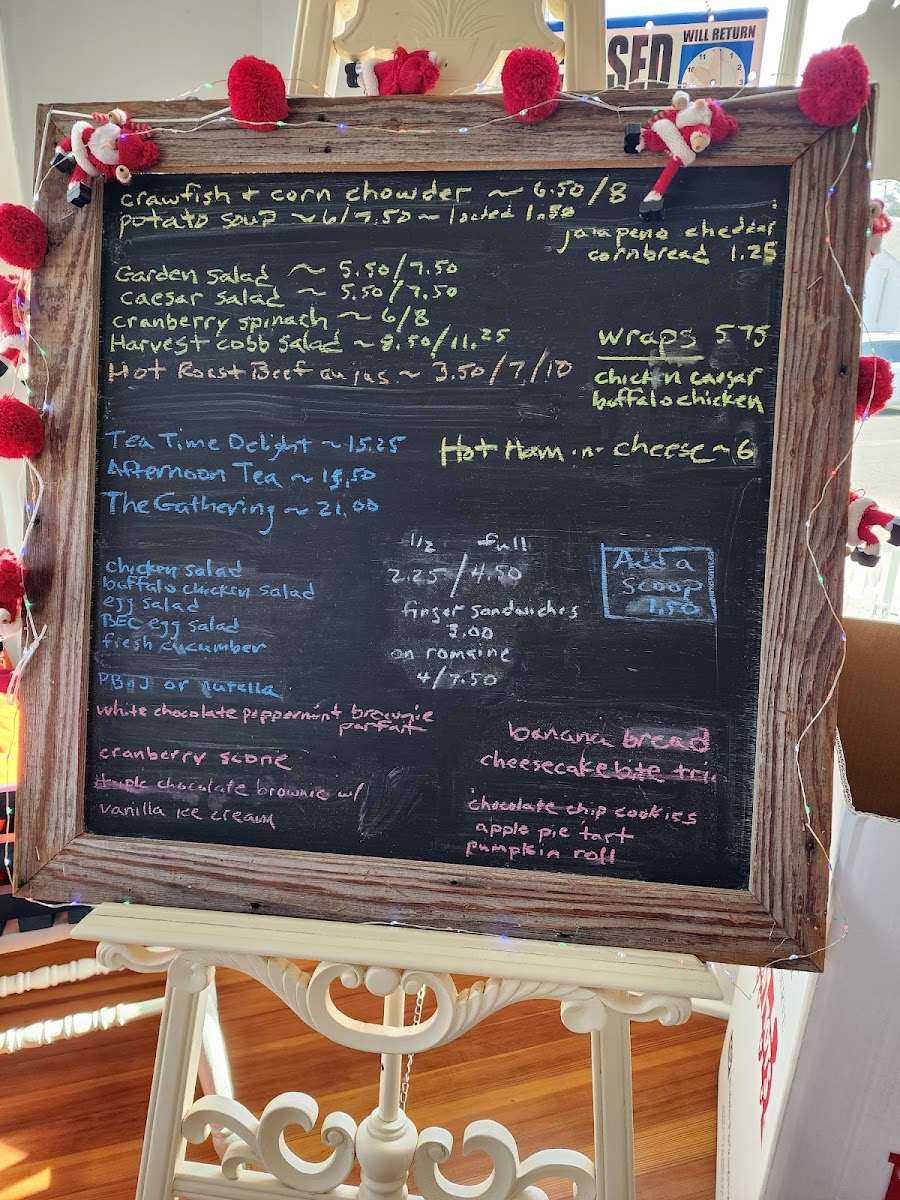 SED
WILL RETURN
crawfish + corn chowder ~ 6.50/8
potato soup ~ 6/7.50 ~ loaded 1.50
jalapeno cheddar
cornbread 1.25
Garden salad ~ 5.50/7.50
caesar salad ~ 5.50/7.50
cranberry spinach ~ 6/8
Harvest cobb salad ~ 8.50/11.25
Hot Roest Beef au jus ~ 3.50/7/10
wraps 5.75
chicken caesar
buffalo chicken
Tea Time Delight ~ 15.25
Hot Ham -n- cheese ~ 6
Afternoon Tea ~
The Gathering ~ 21.00
chicken salad
buffalo chicken salad
egg salad
BEC egg salad
fresh cucumber
PBnJ or nutella
1/2 full
2.25/4.50
finger sandwiches
3.00
on romaine
4/7.50
Add a
scoop
white chocolate peppermint brownie
parfait
cranberry scone
triple chocolate brownie w/
vanilla ice cream
banana bread
cheesecake bite trio
chocolate chip cookies
apple pie tart
pumpkin roll